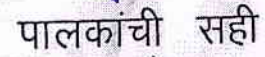 पालकांची सही